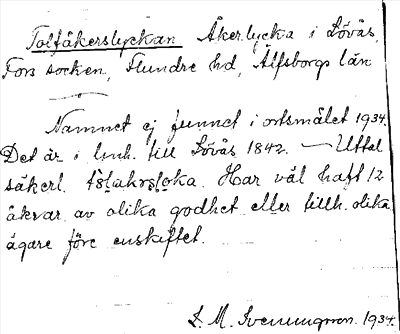 Tolfåkerslyckan Åker.lycka i Lövås,
Fors socken, Flundre hd, Älfsborgs län
Namnet ej funnet i ortsmålet 1934.
Det är i till Lövås 1842. — Uttal
säkerl. Har väl haft 12
åkrar av olika godhet eller tillh. olika
ägare före enskiftet.
L. M. Svenungsson. 1934.